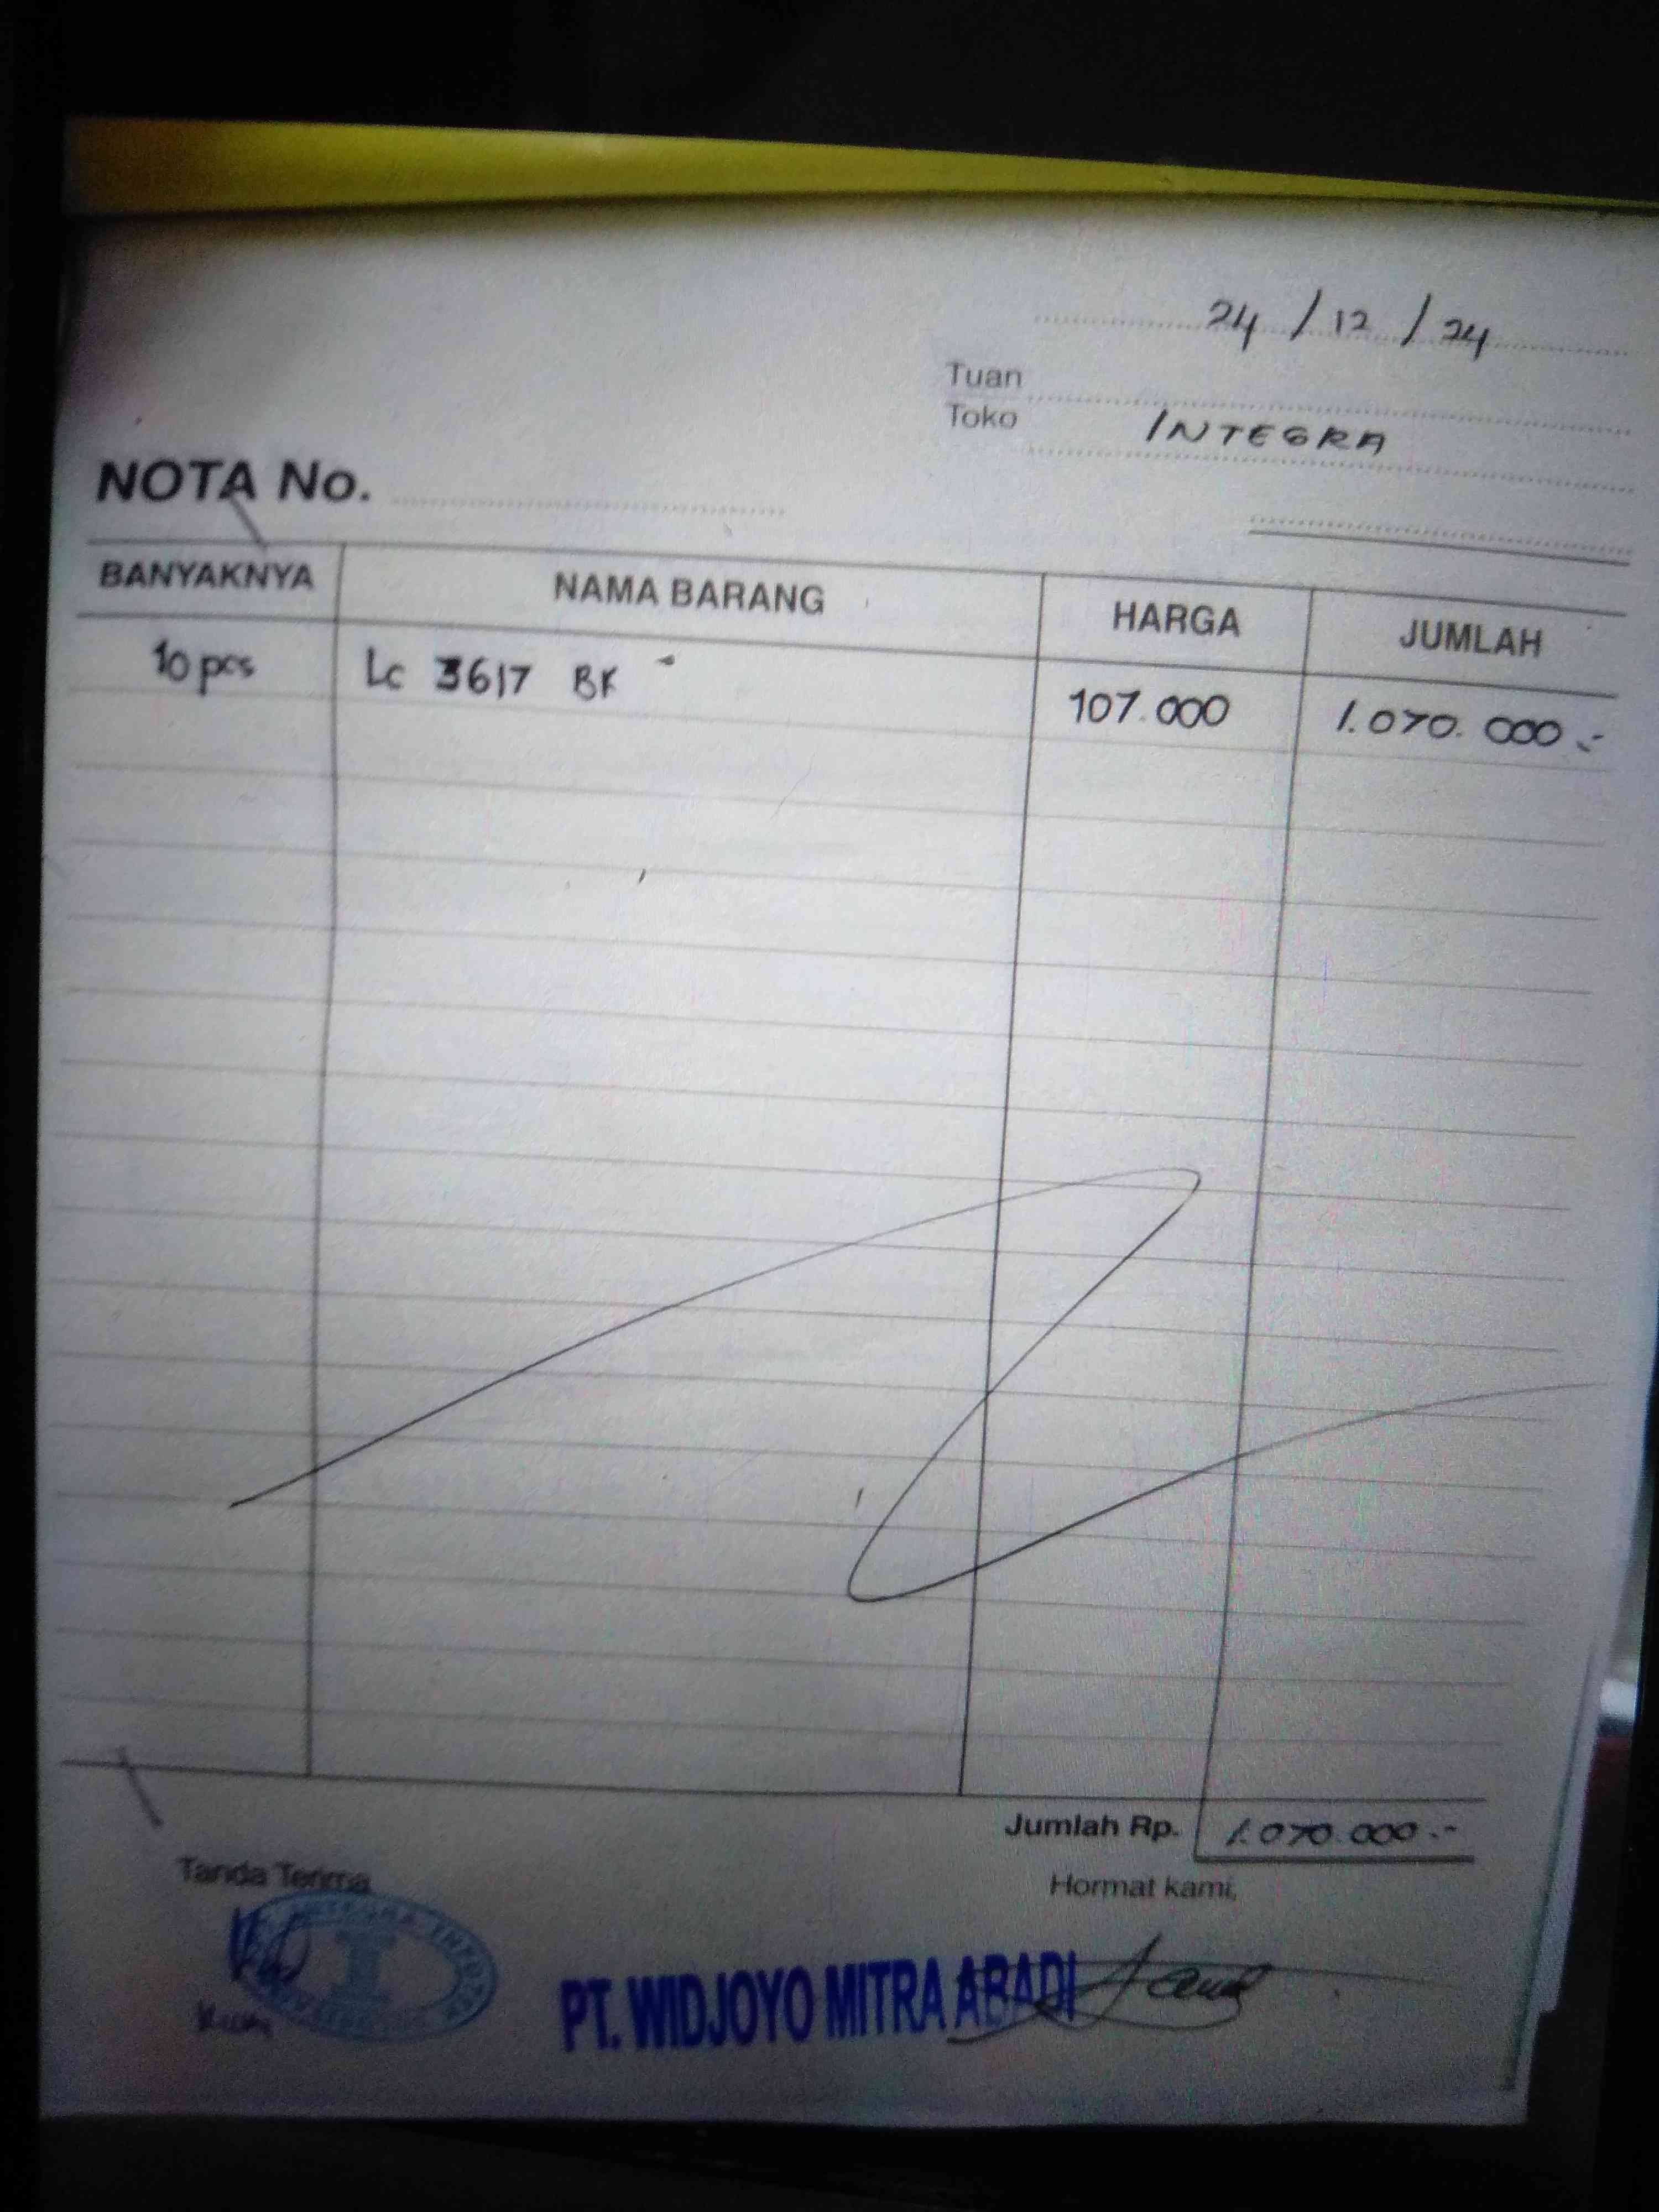 24 / 12 / 24
Tuan
Toko INTEGRA
NOTA No.
BANYAKNYA NAMA BARANG HARGA JUMLAH
10 pcs Lc 3617 BK 107.000 1.070.000.-
Jumlah Rp. 1.070.000.-
Tanda Terima Hormat kami,
INTEGRA
PT. WIDJOYO MITRA ABADI